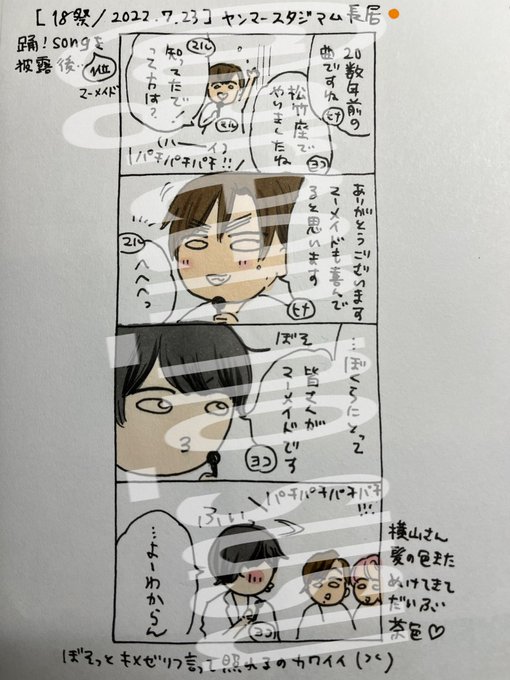 ［18祭／2022.7.23］ヤンマースタジアム長居
踊！songを
披露後…
1位
マーメイド
20数年前の
曲ですね
ヒナ
松竹座で
やりましたね
ヨコ
マル
知ってたで！
って方は？
マル
（ハーイ）
パチパチパチパチ!!
ありがとうございます
マーメイドも喜んで
ると思います
ヒナ
マル
へへへっ
…ぼくらにとって
ぼそ
皆さんが
マーメイドです
ヨコ
3
パチパチパチパチパチ
!!!
ふぃ
…よーわからん
横山さん
髪の色また
ぬけてきて
だいぶい
茶色♡
ぼそっとキメゼリフ言って照れるのカワイイ